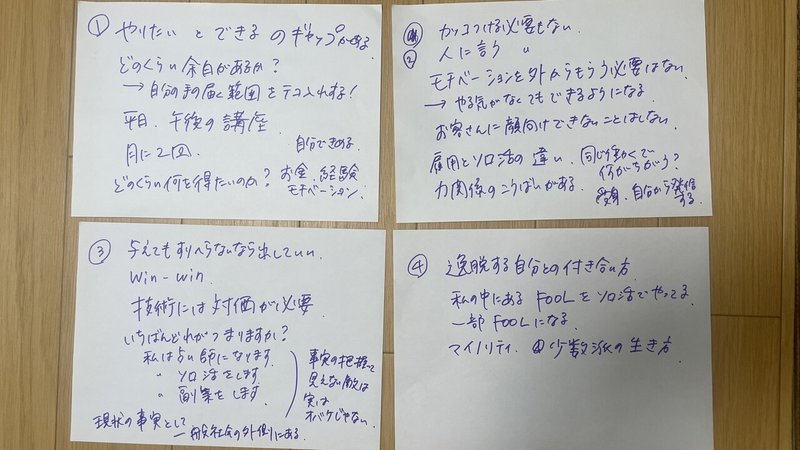 ① やりたい と できる の ギャップがある
どのくらい 余白があるか?
→ 自分の手の届く範囲をテコ入れする!
平日、午後の講座
月に2回、
自分でできる
どのくらい何を得たいのか? お金、経験
モチベーション、
② カッコつける必要もない
人に言う 〃
モチベーションを外からもらう必要はない
→ やる気がなくてもできるようになる
お客さんに顔向けできないことはしない
雇用とソロ活の違い、同じ働くでも
何がちがう?
力関係のこうばいがある、
受身、自分から発信
する、
③ 与えてもすりへらないなら出していい
win-win
技術には対価が必要
いちばんどれがつまりますか?
私は占い師になります
〃 ソロ活をします
〃 副業をします
事実の把握って
見えない敵は
実は
オバケじゃない
現状の事実として
一般社会の外側にある、
④ 逸脱する自分との付き合い方
私の中にある FOOL をソロ活でやってる
一部 FOOLになる
マイノリティ、少数派の生き方